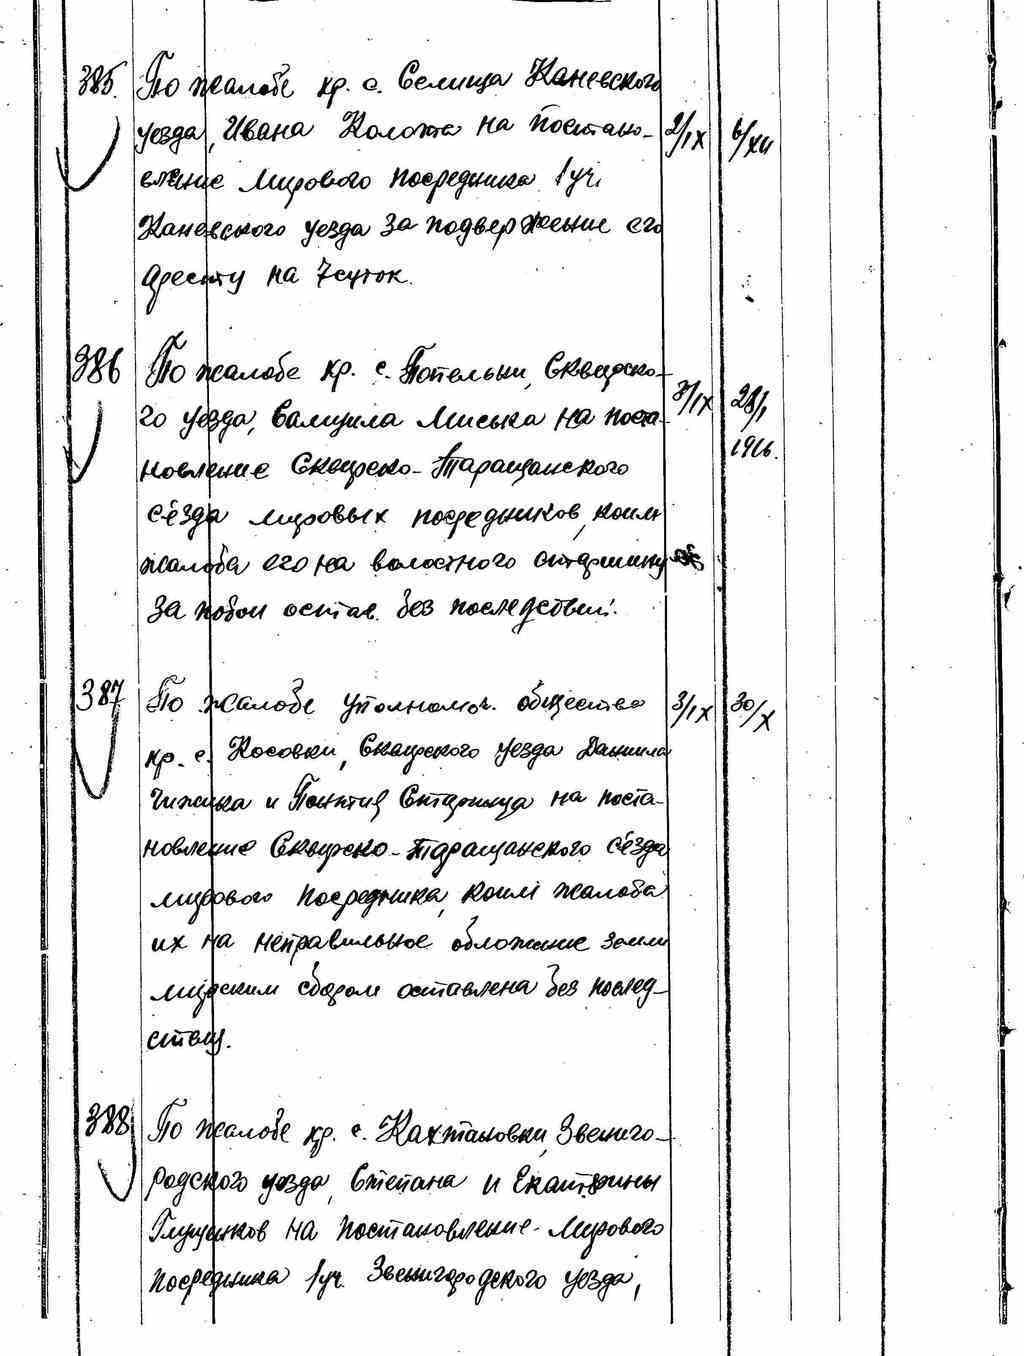 385. По жалобе кр. с. Селища Каневского
уезда, Ивана Колота на постано- 2/IX 6/XII
вление Мирового посредника 1 уч.
Каневского уезда за подвержение его
аресту на 7 суток.
386 По жалобе кр. с. Попельни, Сквирско-
го уезда, Самуила Миська на поста- 3/IX 28/I
новление Сквирско-Таращанского 1916.
съезда мировых посредников, коим
жалоба его на волостного старшину
за побои остав. без последствий.
387 По жалобе уполномоч. общества 3/IX 30/X
кр. с. Косовки, Сквирского уезда Даниила
Чижика и Понтия на поста-
новление Сквирско-Таращанского съезда
мирового посредника, коим жалоба
их на неправильное обложение земли
мирским сбором оставлена без послед-
ствия.
388 По жалобе кр. с. Кахтановки, Звениго-
родского уезда, Степана и Екатерины
Глущенков на постановление Мирового
посредника 1 уч. Звенигородского уезда,